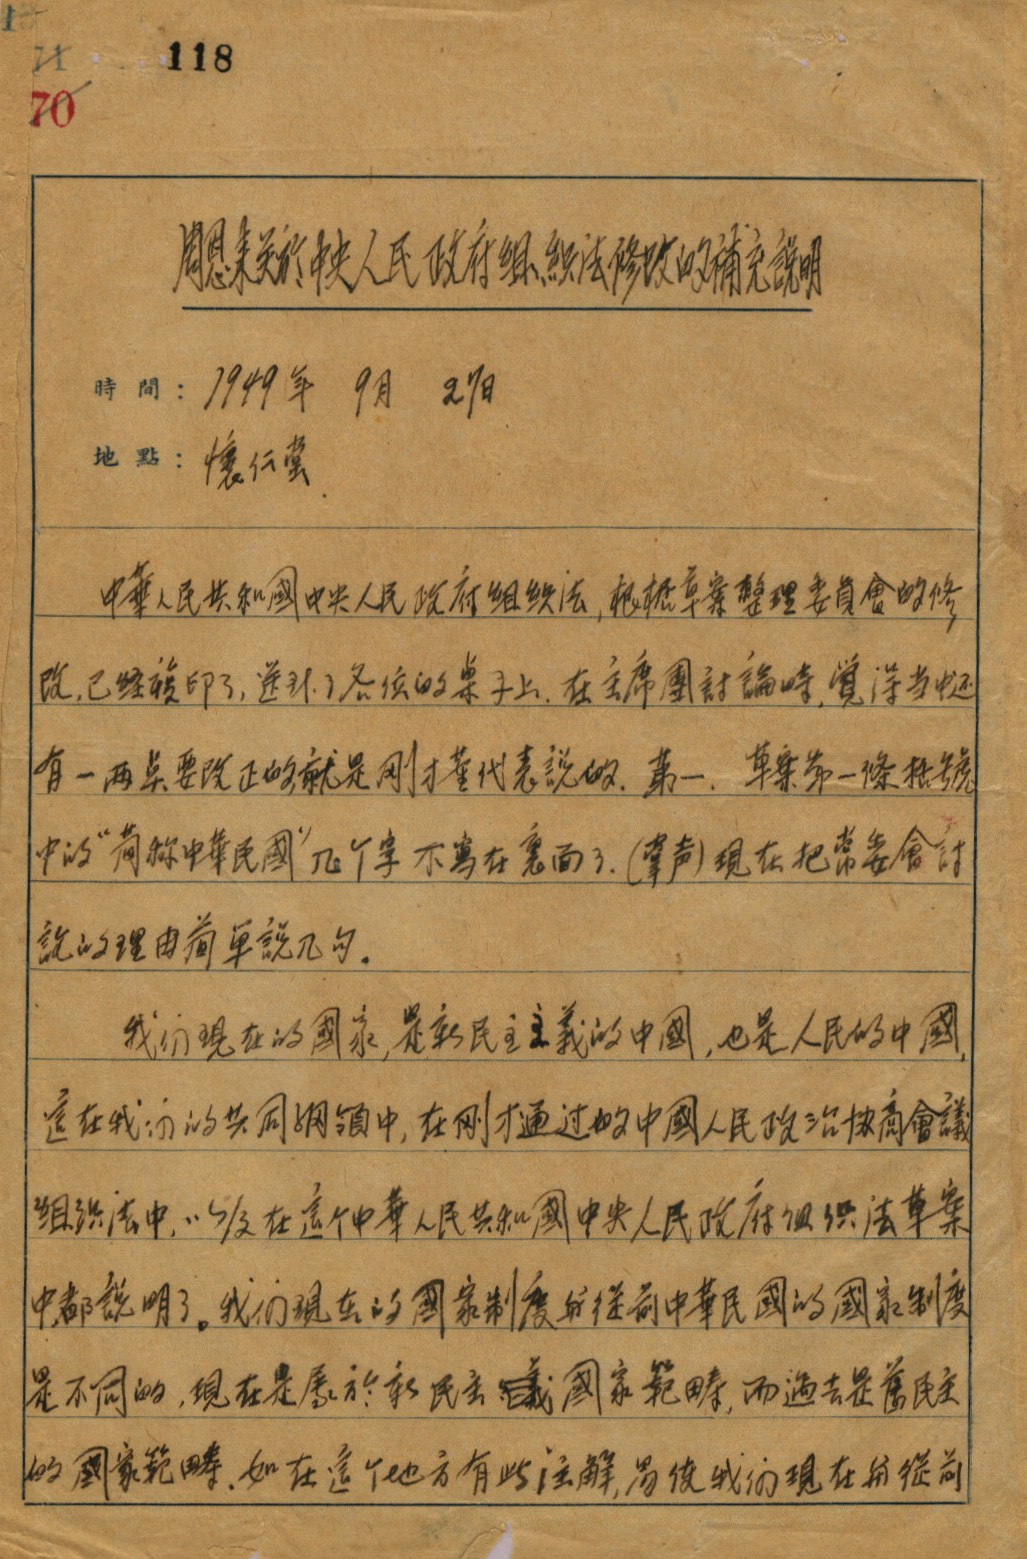 118
70
周恩來关於中央人民政府組织法修改的補充說明
時間：1949年 9月 27日
地點：懷仁堂
中華人民共和國中央人民政府組织法，根據草案整理委員會的修
改，已經複印了，送到了各位的桌子上．在主席團討論時，覺得当中还
有一两点要改正的就是刚才董代表說的．第一．草案第一條括號
中的“简称中華民國”几个字不寫在裏面了．（掌声）現在把常委會討
說的理由简單說几句。
我们現在的國家，是新民主主義的中國，也是人民的中國，
這在我们的共同綱領中，在刚才通过的中國人民政治協商會議
組织法中，以及在這个中華人民共和國中央人民政府組织法草案
中都說明了。我们現在的國家制度與從前中華民國的國家制度
是不同的，現在是屬於新民主義國家範疇，而過去是舊民主
的國家範疇．如在這个地方有些注解，易使我们現在與從前